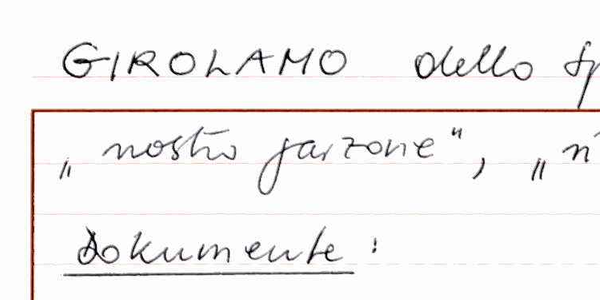 GIROLAMO dello Sp
„nostro garzone“, „n
Dokumente: